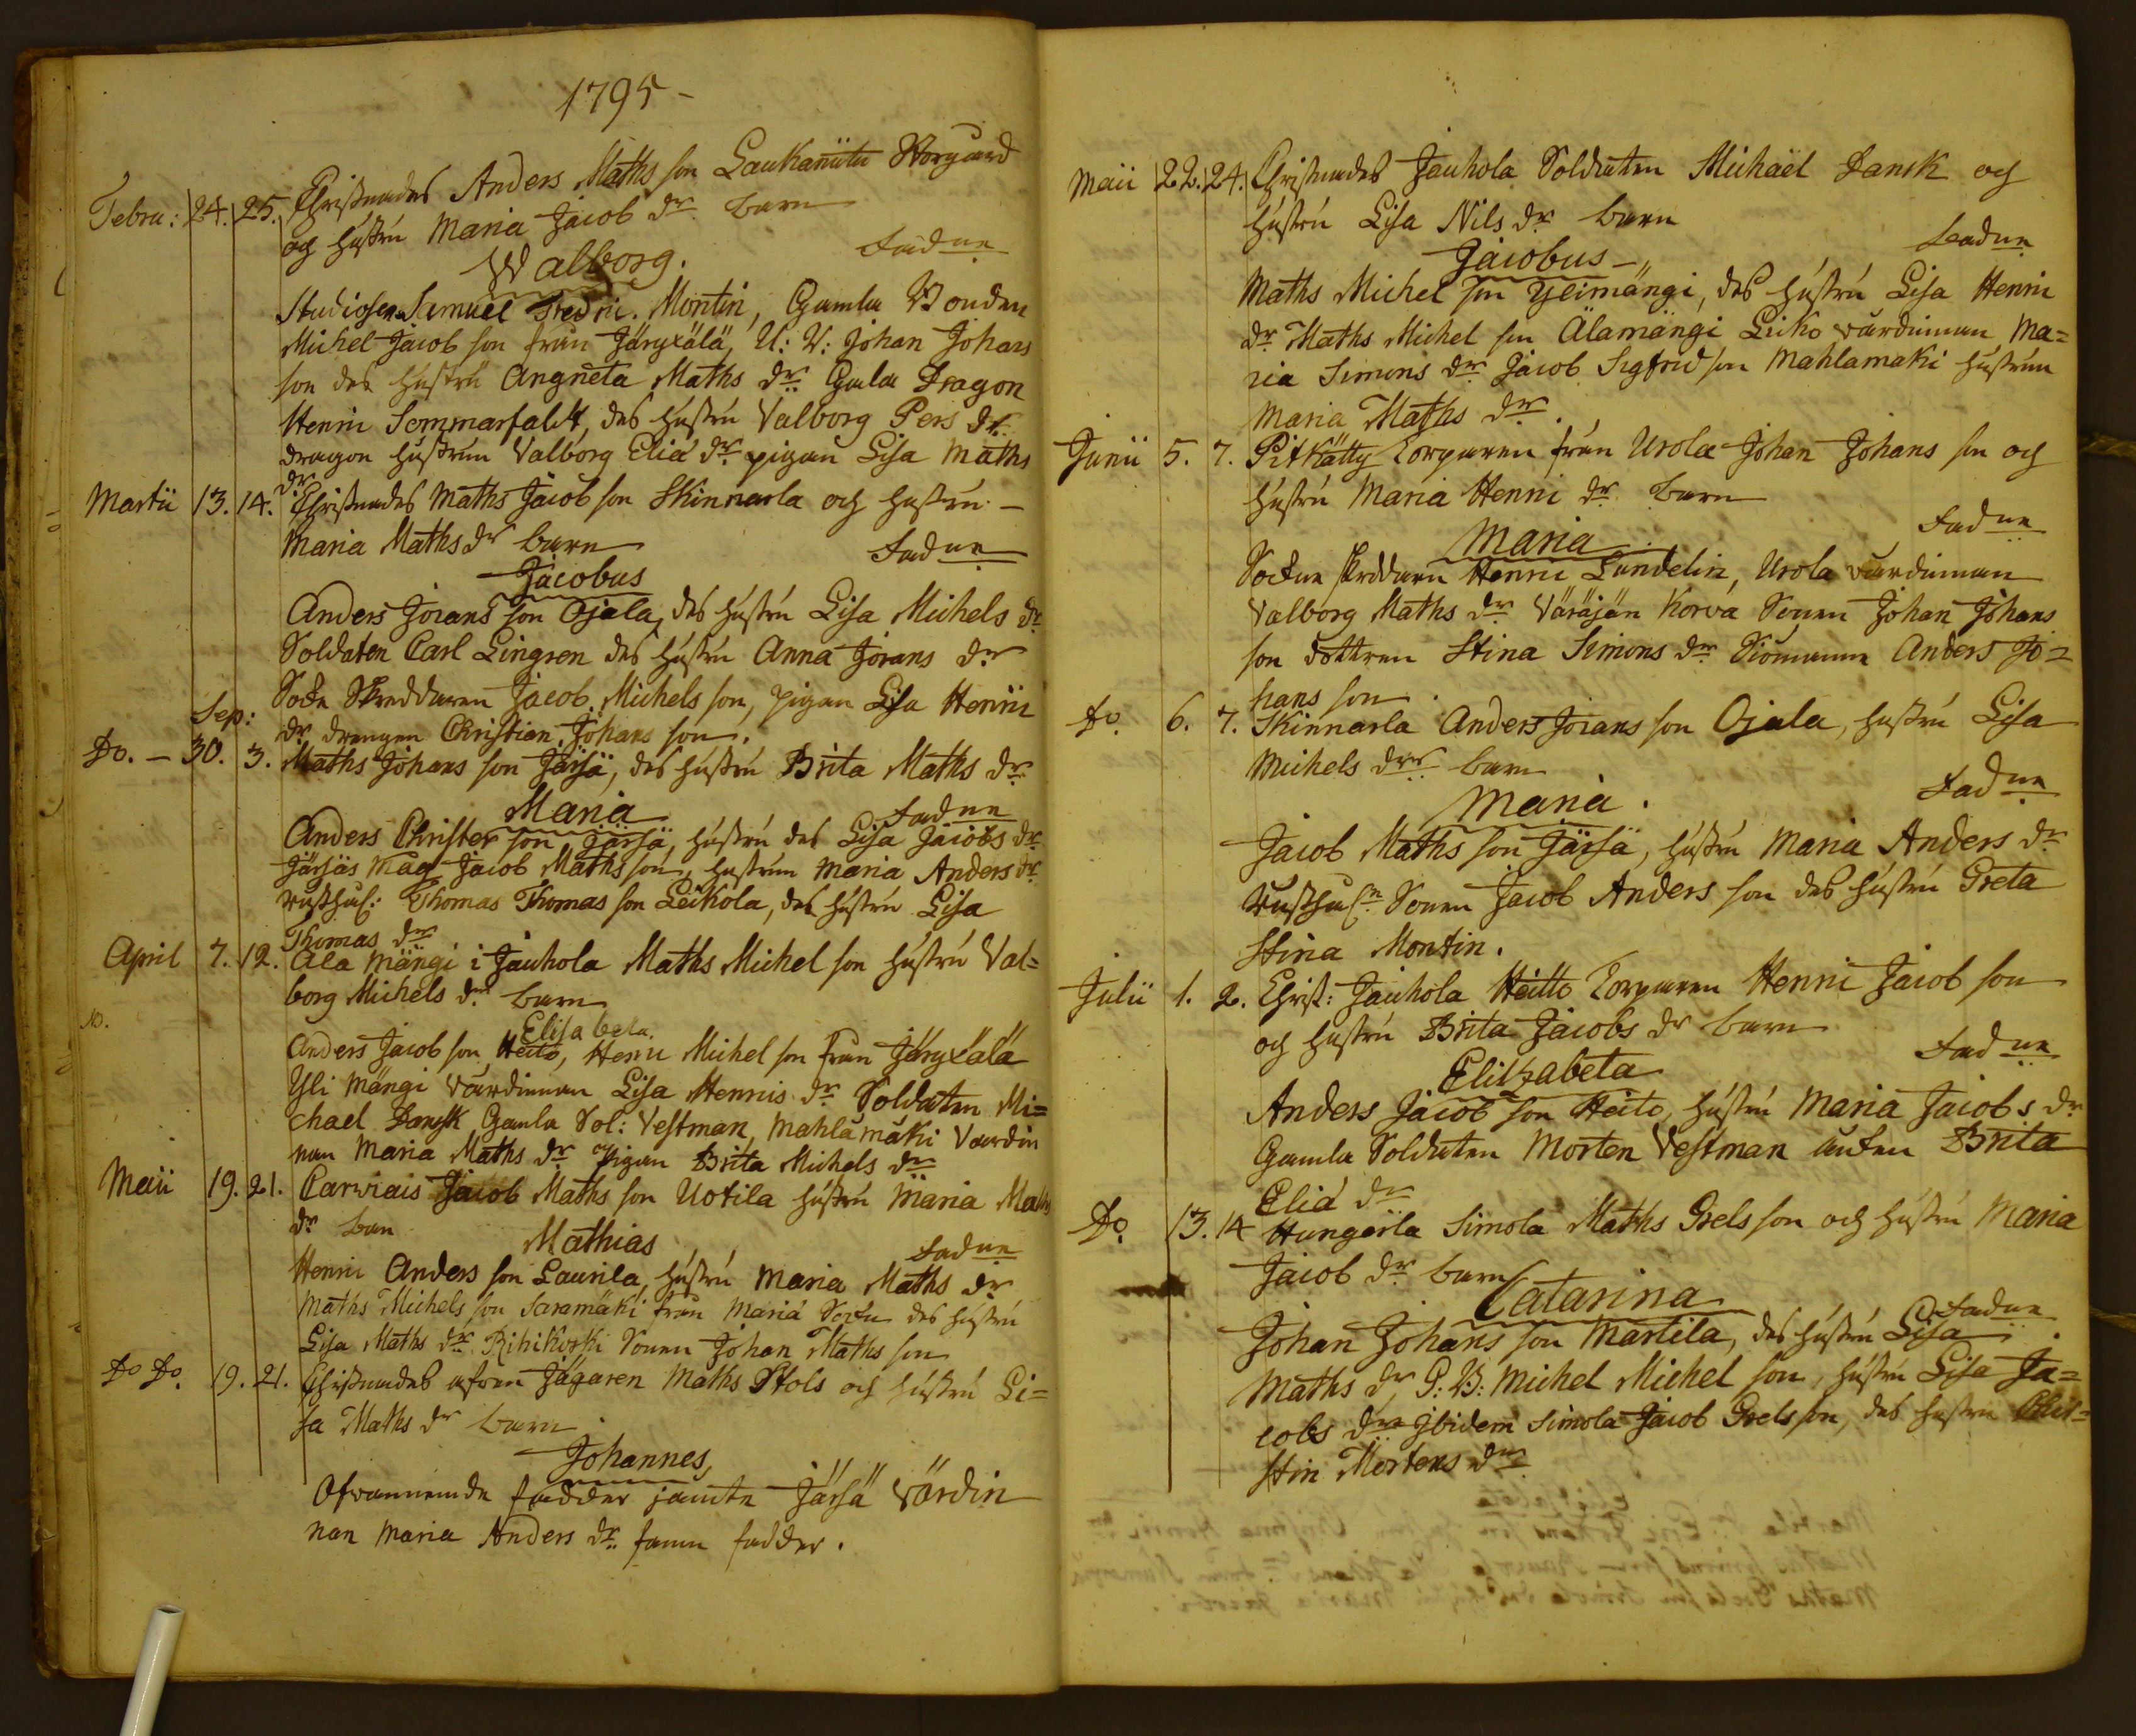 1795 -
Febru: 24. 25. Christnades Anders Maths son Laukanütu Storgård
och hustru Maria Jacob dr barn
Walborg. Fadne
Studiosen Samuel Fredric. Montin, Gamla Bonden
Michel Jacob son från Järyxälä, U: V: Johan Johans
son des hustru Angneta Maths dr Gamla Dragon
Henric Sommarfaldt, des hustru Valborg Pers dr
dragon hustrun Valborg Eliæ dr pigan Lisa Maths
dr
Martii 13. 14. Christnades Maths Jacob son Skinnarla och hustru -
Maria Maths dr barn Fadne
Jacobus
Anders Jörans son Ojala, des hustru Lisa Michels dr
Soldaten Carl Lingren des hustru Anna Jörans dr
Sokn Skreddaren Jacob Michels son, pigan Lisa Henric
dr drengen Christian Johans son.
Sep:
Do. - 30. 3. Maths Johans son Järsä, des hustru Brita Maths dr
Maria Fadne
Anders Christer son Järsä, hustru des Lisa Jacobs dr
Järsäs Mag Jacob Maths son, hustrun Maria Anders dr
rusthus: Thomas Thomas son Leikola, des hustru Lisa
Thomas dr
April 7. 12. Ala Mängi i Jauhola Maths Michel son hustru Val=
borg Michels dr barn
Elisabeta.
Anders Jacob son Heito, Henric Michel son från Järyxälä
Yli Mängi värdinnan Lisa Hennis dr Soldaten Mi=
chael Dansk Gamla Sol: Vestman, Mahlamäki Värdin
nan Maria Maths dr Pigan Brita Michels dr
Maii 19. 21. Carwiais Jacob Maths son Uotila hustru Maria Maths
dr barn
Mathias Fadne
Henric Anders son Laurila, hustru Maria Maths dr
Maths Michels son Saramäki från Mariä Sokn des hustru
Lisa Maths dr Rihikoski Sonen Johan Maths son
Do Do. 19. 21. Christnades afven Jägaren Maths Stols och hustru Li=
sa Maths dr barn
Johannes
Ofvannemde fadder jämte Järsä Värdin
nan Maria Anders dr samn fadder.
Maii 22. 24. Christnades Jauhola Soldaten Michael Dansk och
hustru Lisa Nils dr barn
Jacobus - Fadne
Maths Michel son Ylimängi, des hustru Lisa Henric
dr Maths Michel son Älamängi Leiko värdinnan Ma=
ria Simons dr Jacob Sigfrid son Mahlamaki hustrun
Maria Maths dr.
Junii 5. 7. Pitkätty Torparen från Urola Johan Johans son och
hustru Maria Henric dr barn
Maria Fadne
Sockne skreddaren Henric Lundelin, Urola värdinnan
Valborg Maths dr Väräjän Korva Sonen Johan Johans
son dottren Stina Simons dr Siomann Anders Jo=
hans son.
Do. 6. 7. Skinnarla Anders Jörans son Ojala, hustru Lisa
Michels dr barn
Maria. Fadne
Jacob Maths son Järsä, hustru Maria Anders dr
Rusthusn Sonen Jacob Anders son des hustru Greta
Stina Montin.
Julii 1. 2. Christ: Jauhola Heitto Torparen Henric Jacob son
och hustru Brita Jacobs dr barn
Elitzabeta Fadne
Anders Jacob son Heito, hustru Maria Jacobs dr
Gamla Soldaten Morten Vestman enken Brita
Eliæ dr
Do. 13. 14 Hungerla Simola Maths Grels son och hustru Maria
Jacob dr barn
Catarina Fadne
Johan Johans son Martila, des hustru Lisa
Maths dr G: B: Michel Michel son, hustru Lisa Ja=
cobs dr jbidem Simola Jacob Grels son, des hustru Chri=
stin Mortens dr